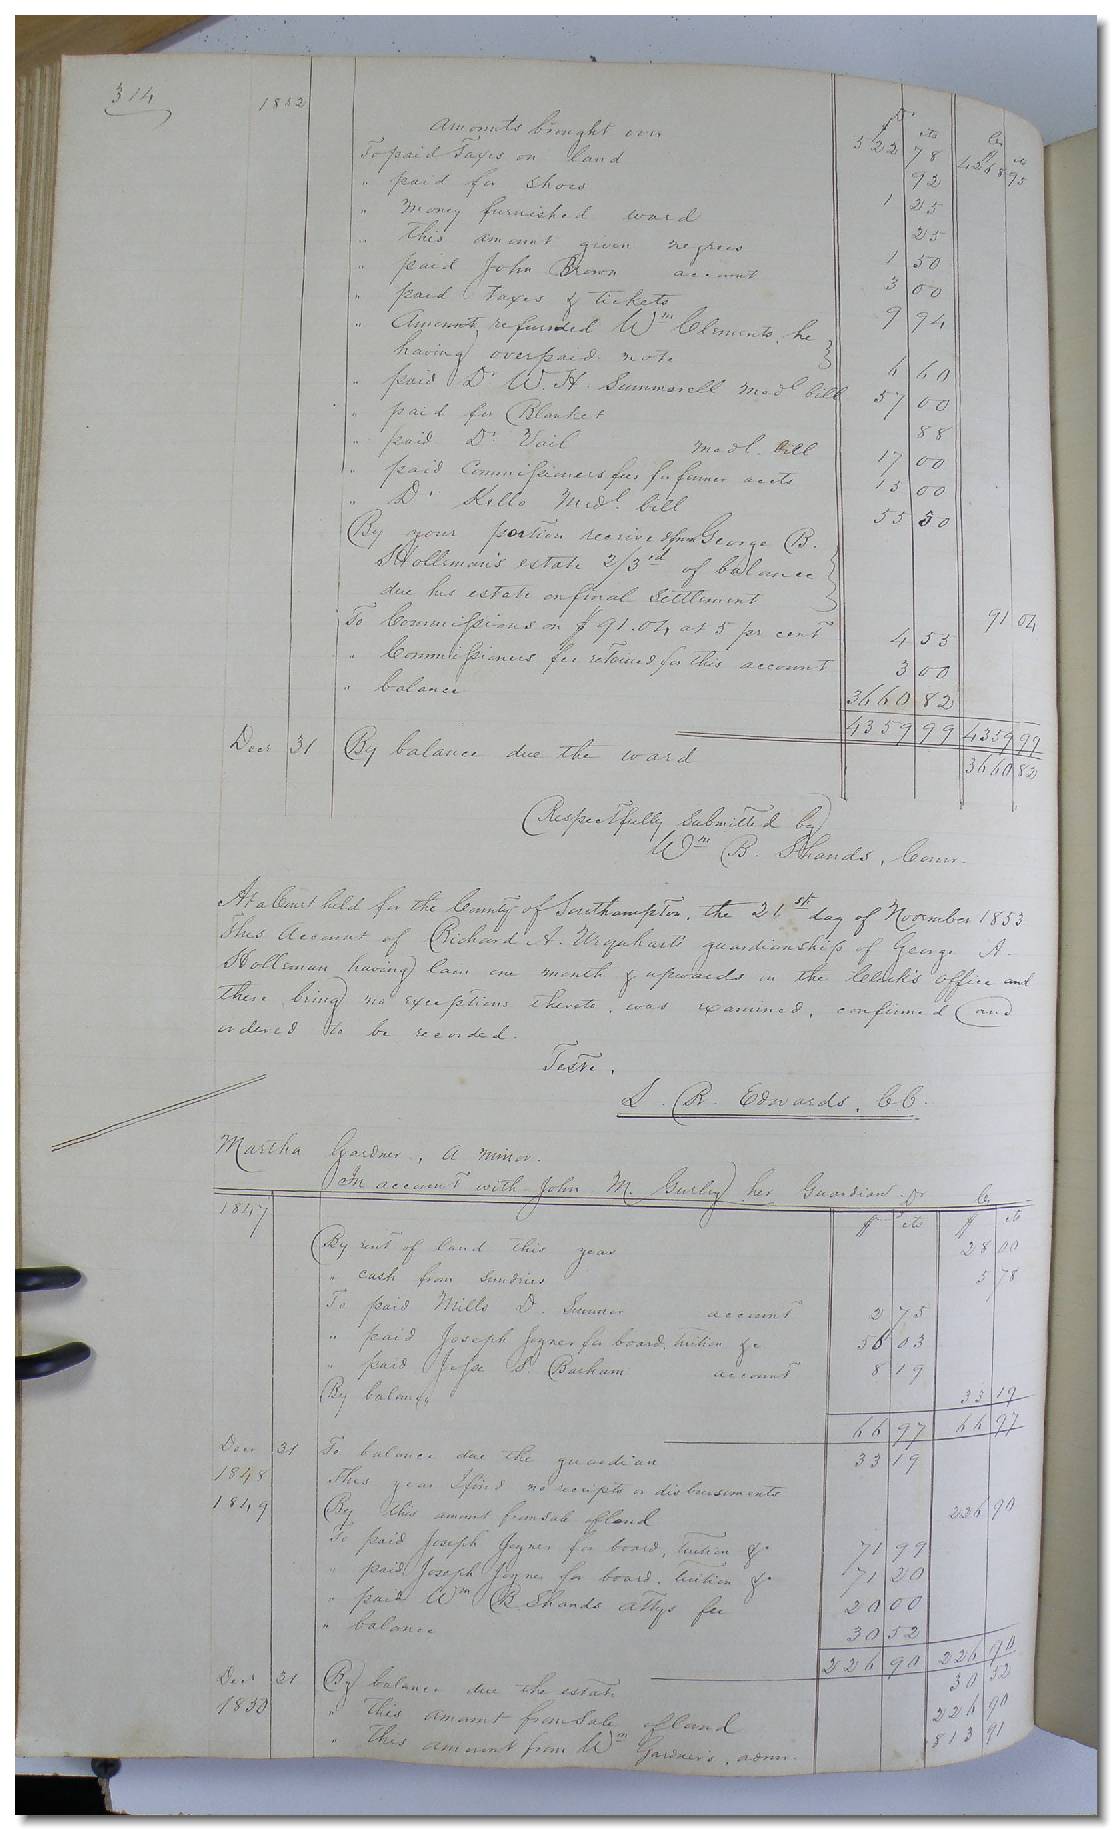 314
1852
Dr Cr
Amounts brought over $ 522 cts 78 $ 4268 cts 95
To paid Taxes on land 92
" paid for shoes 1 25
" money furnished ward 25
" this amount given negroes 1 50
" paid John Brown account 3 00
" paid taxes & tickets 9 94
" Amount refunded Wm Clements, he
having overpaid note 6 60
" paid Dr W. H. Summerell Medl bill 57 00
" paid for Blanket 88
" paid Dr Vail medl. bill 17 00
" paid Commissioners fees for former accts 15 00
" Dr Kello Medl. bill 55 50
By your portion received from George B.
Holleman's estate 2/3rd of balance
due his estate on final Settlement 91 04
To Commissions on $91.04 at 5 pr cent 4 55
" Commissioners fee retained for this account 3 00
" balance 3660 82
4359 99 4359 99
Decr 31 By balance due the ward 3660 82
Respectfully Submitted by
Wm B. Shands, Comr.
At a Court held for the County of Southampton, the 21st day of November 1853
This Account of Richard A. Urquhart's guardianship of George A.
Holleman having lain one month & upwards in the Clerk's office and
there being no exceptions thereto, was examined, confirmed and
ordered to be recorded.
Teste,
L. R. Edwards, C.C.
Martha Gardner, a minor.
In account with John M. Gurley her Guardian Dr Cr
1847 $ cts $ cts
By rent of land this year 28 00
" cash from Sundries 5 78
To paid Mills D. Sumner account 2 75
" paid Joseph Joyner for board, tuition &c 56 03
" paid Jesse S. Barham account 8 19
By balance 33 19
66 97 66 97
Decr 31 To balance due the guardian 33 19
1848 This year I find no receipts or disbursements
1849 By this amount from sale of land 226 90
To paid Joseph Joyner for board, tuition &c 71 99
" paid Joseph Joyner for board, tuition &c 71 20
" paid Wm B Shands attys fee 20 00
" balance 30 52
226 90 226 90
Decr 31 By balance due the estate 30 52
1850 " This amount from sale of land 226 90
" This amount from Wm Gardner's, admr. 813 91